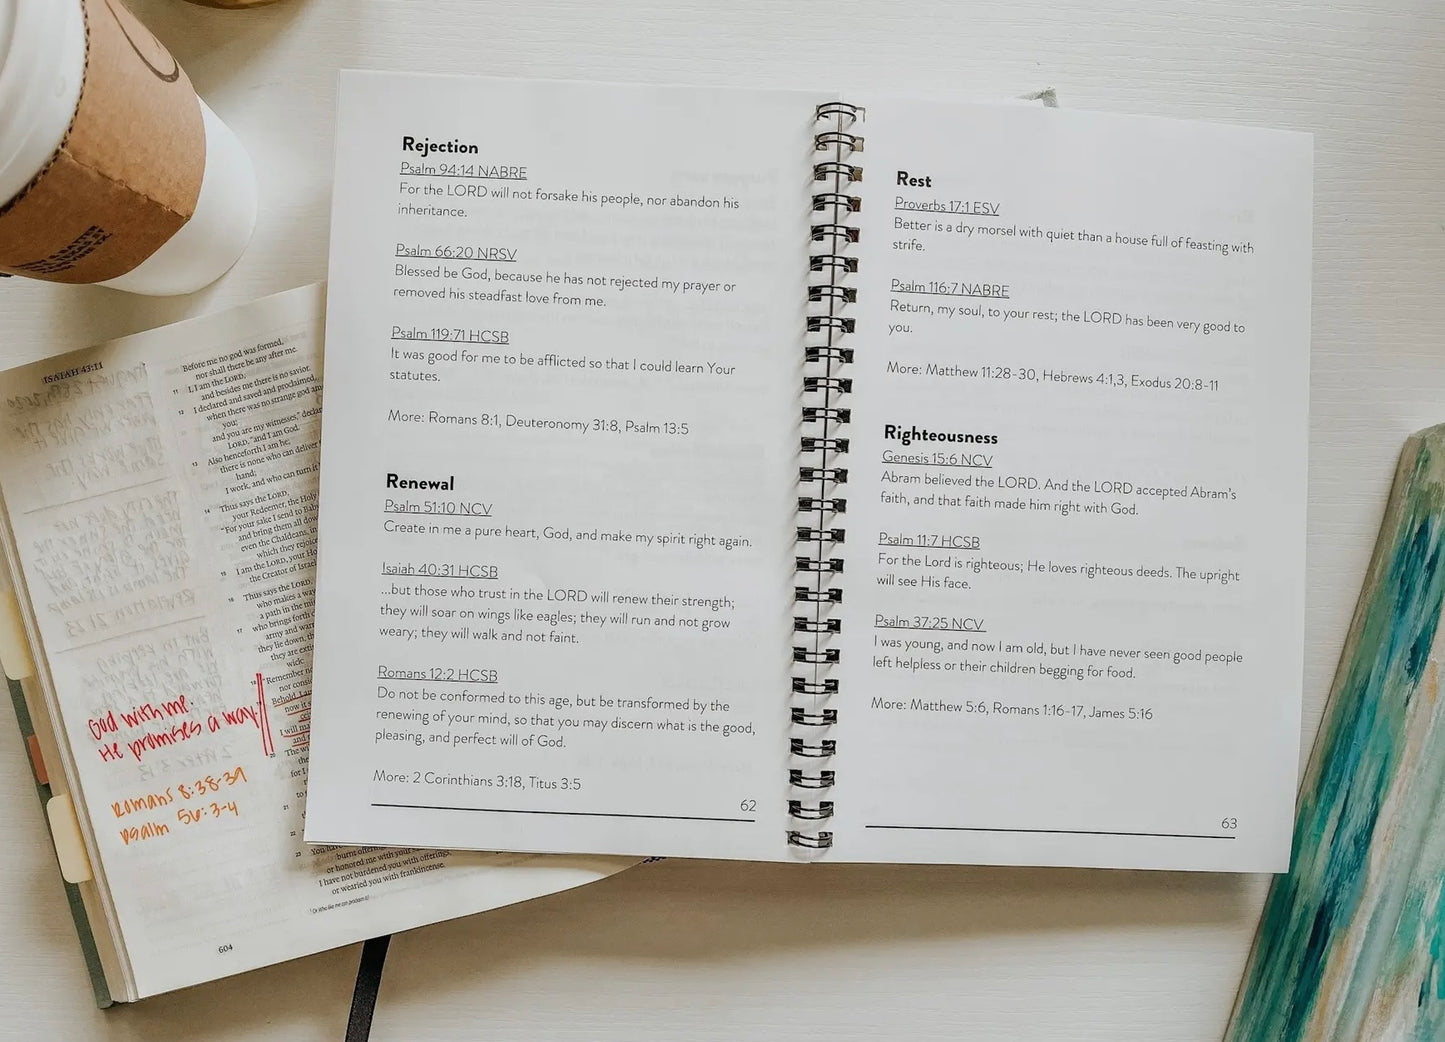 Rejection
Psalm 94:14 NABRE
For the LORD will not forsake his people, nor abandon his
inheritance.
Psalm 66:20 NRSV
Blessed be God, because he has not rejected my prayer or
removed his steadfast love from me.
Psalm 119:71 HCSB
It was good for me to be afflicted so that I could learn Your
statutes.
More: Romans 8:1, Deuteronomy 31:8, Psalm 13:5
Renewal
Psalm 51:10 NCV
Create in me a pure heart, God, and make my spirit right again.
Isaiah 40:31 HCSB
...but those who trust in the LORD will renew their strength;
they will soar on wings like eagles; they will run and not grow
weary; they will walk and not faint.
Romans 12:2 HCSB
Do not be conformed to this age, but be transformed by the
renewing of your mind, so that you may discern what is the good,
pleasing, and perfect will of God.
More: 2 Corinthians 3:18, Titus 3:5
62
Rest
Proverbs 17:1 ESV
Better is a dry morsel with quiet than a house full of feasting with
strife.
Psalm 116:7 NABRE
Return, my soul, to your rest; the LORD has been very good to
you.
More: Matthew 11:28-30, Hebrews 4:1,3, Exodus 20:8-11
Righteousness
Genesis 15:6 NCV
Abram believed the LORD. And the LORD accepted Abram's
faith, and that faith made him right with God.
Psalm 11:7 HCSB
For the Lord is righteous; He loves righteous deeds. The upright
will see His face.
Psalm 37:25 NCV
I was young, and now I am old, but I have never seen good people
left helpless or their children begging for food.
More: Matthew 5:6, Romans 1:16-17, James 5:16
63
ISAIAH 43:11
Before me no god was formed,
nor shall there be any after me.
11 I, I am the LORD,
and besides me there is no savior.
12 I declared and saved and proclaimed,
when there was no strange god
you;
and you are my witnesses," 
LORD, "and I am God.
13 Also henceforth I am he;
there is none who can deliver
hand;
I work, and who can turn it
14 Thus says the LORD,
your Redeemer, the Holy
"For your sake I send to
and bring them all
even the Chaldeans, in
which they
15 I am the LORD, your
the Creator of
16 Thus says the LORD,
who makes a way
a path in the
17 who brings forth
army and
they lie down,
they are
wick:
18 "Remember
nor
Behold, I
now it
I will
and
20 The
for I
to
21
22
You
23
burnt
or honored me with your
I have not burdened you with offerings,
or wearied you with frankincense.
604
God with me.
He promises a way.
Romans 8:38-39
Psalm 56:3-4